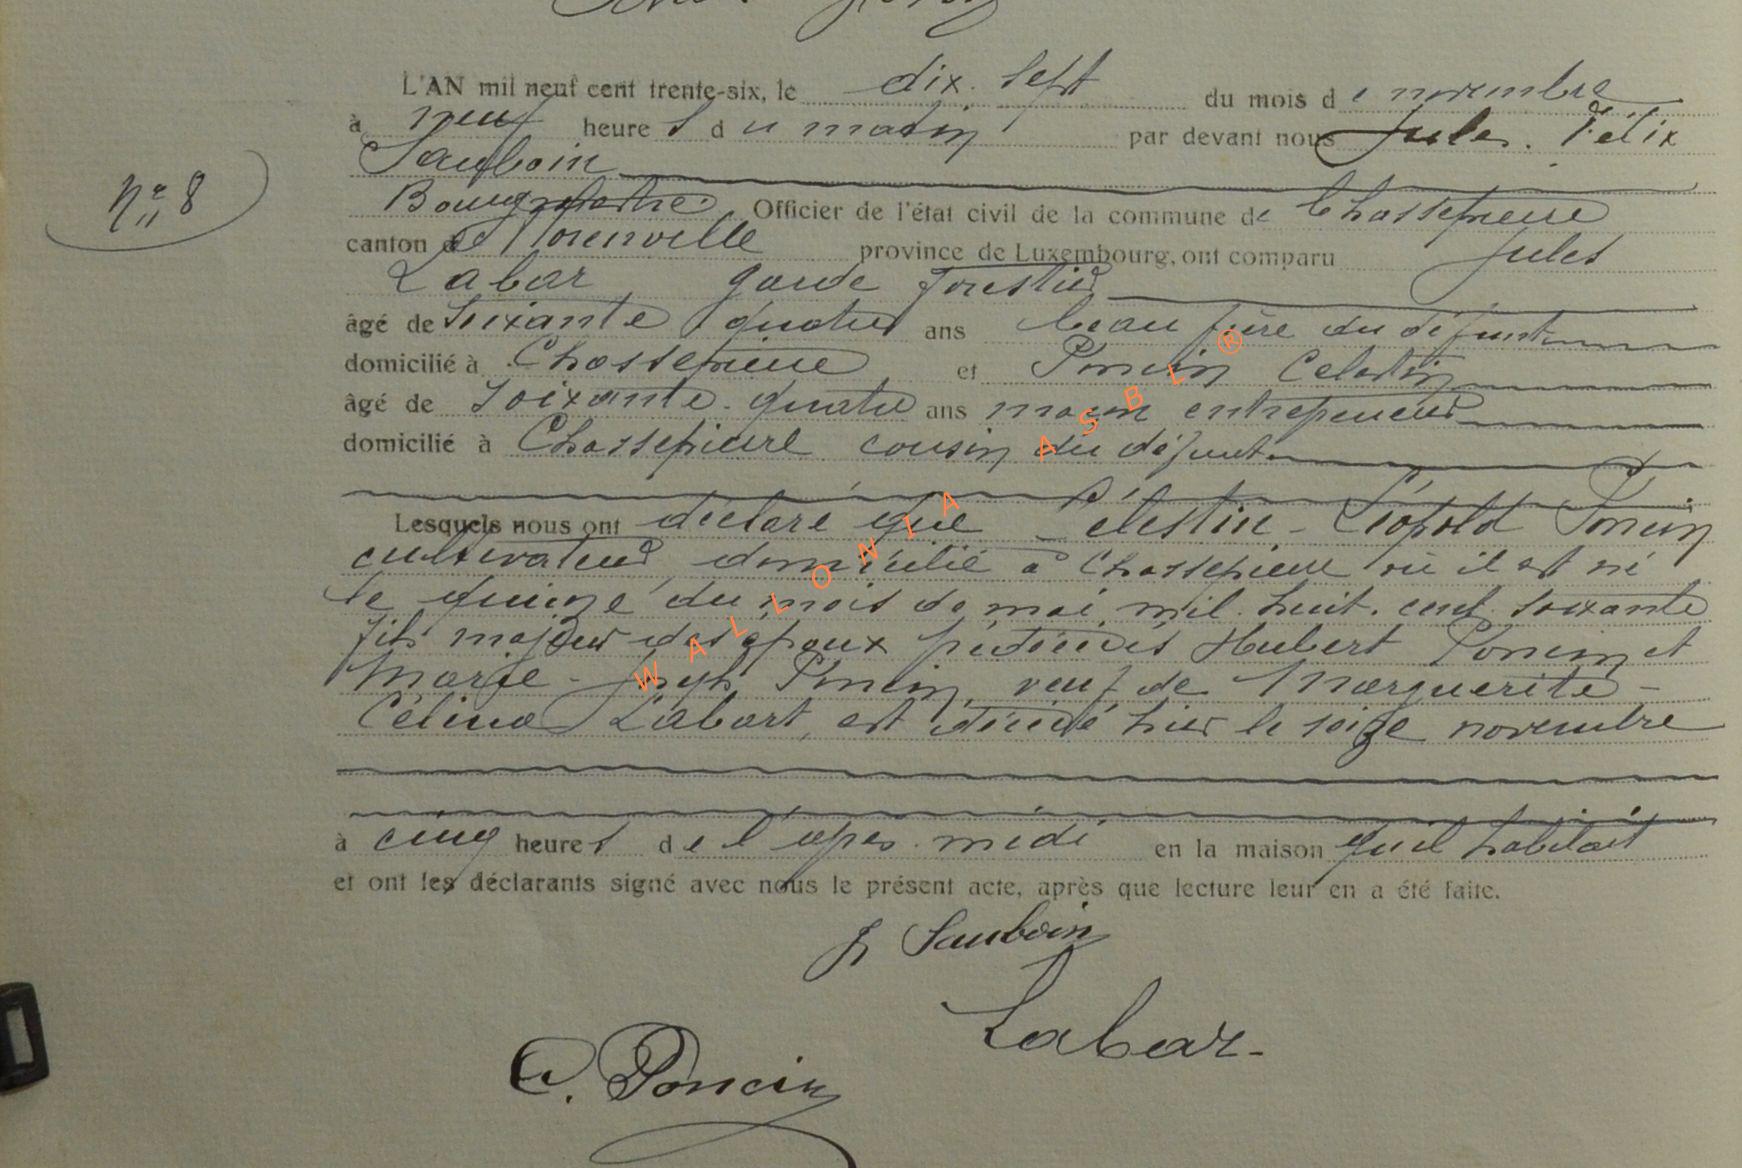 L'AN mil neuf cent trente-six, le dix-sept du mois de novembre
à neuf heures du matin par devant nous Jules Félix
Sauboin
N° 8
Bourgmestre Officier de l'état civil de la commune de Chassepierre
canton de Florenville province de Luxembourg, ont comparu Jules
Labar garde forestier
âgé de soixante quatre ans beau frère du défunt
domicilié à Chassepierre et Poncin Celestin
âgé de soixante-quatre ans maçon entrepreneur
domicilié à Chassepierre cousin du défunt
Lesquels nous ont déclaré que Célestin-Léopold Poncin
cultivateur domicilié à Chassepierre où il est né
le quinze du mois de mai mil huit cent soixante
fils majeur des époux prédécédés Hubert Poncin et
Marie-Joseph Poncin, veuf de Marguerite-
Célina Labart, est décédé hier le seize novembre
à cinq heures de l'apès-midi en la maison qu'il habitait
et ont les déclarants signé avec nous le présent acte, après que lecture leur en a été faite.
J Sauboin
Labar
C. Poncin
WALLONIA ASBL ®